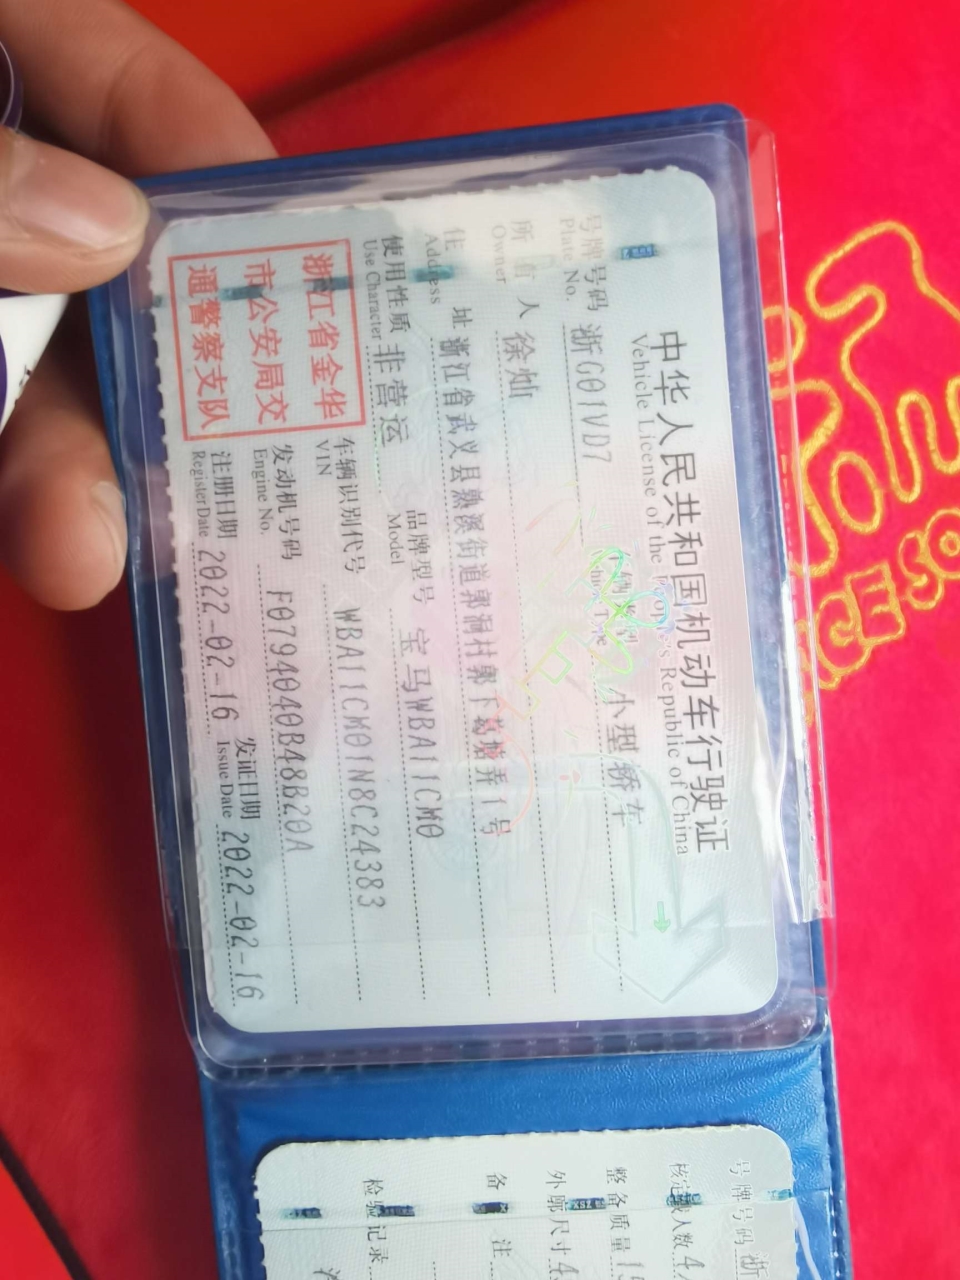 中华人民共和国机动车行驶证
Vehicle License of the People's Republic of China
号牌号码 浙G01VD7 车辆类型 小型轿车
Plate No. Vehicle Type
所有人 徐灿
Owner
住址 浙江省武义县熟溪街道郭洞村郭下葛塘弄1号
Address
使用性质 非营运 品牌型号 宝马WBA11CM0
Use Character Model
浙江省金华
市公安局交
通警察支队
车辆识别代号 WBA11CM01N8C24383
VIN
发动机号码 F0794040B48B20A
Engine No.
注册日期 2022-02-16 发证日期 2022-02-16
Register Date Issue Date
号牌号码 浙
核定载人数 4
整备质量 15
外廓尺寸 4
备注
检验记录
CESO